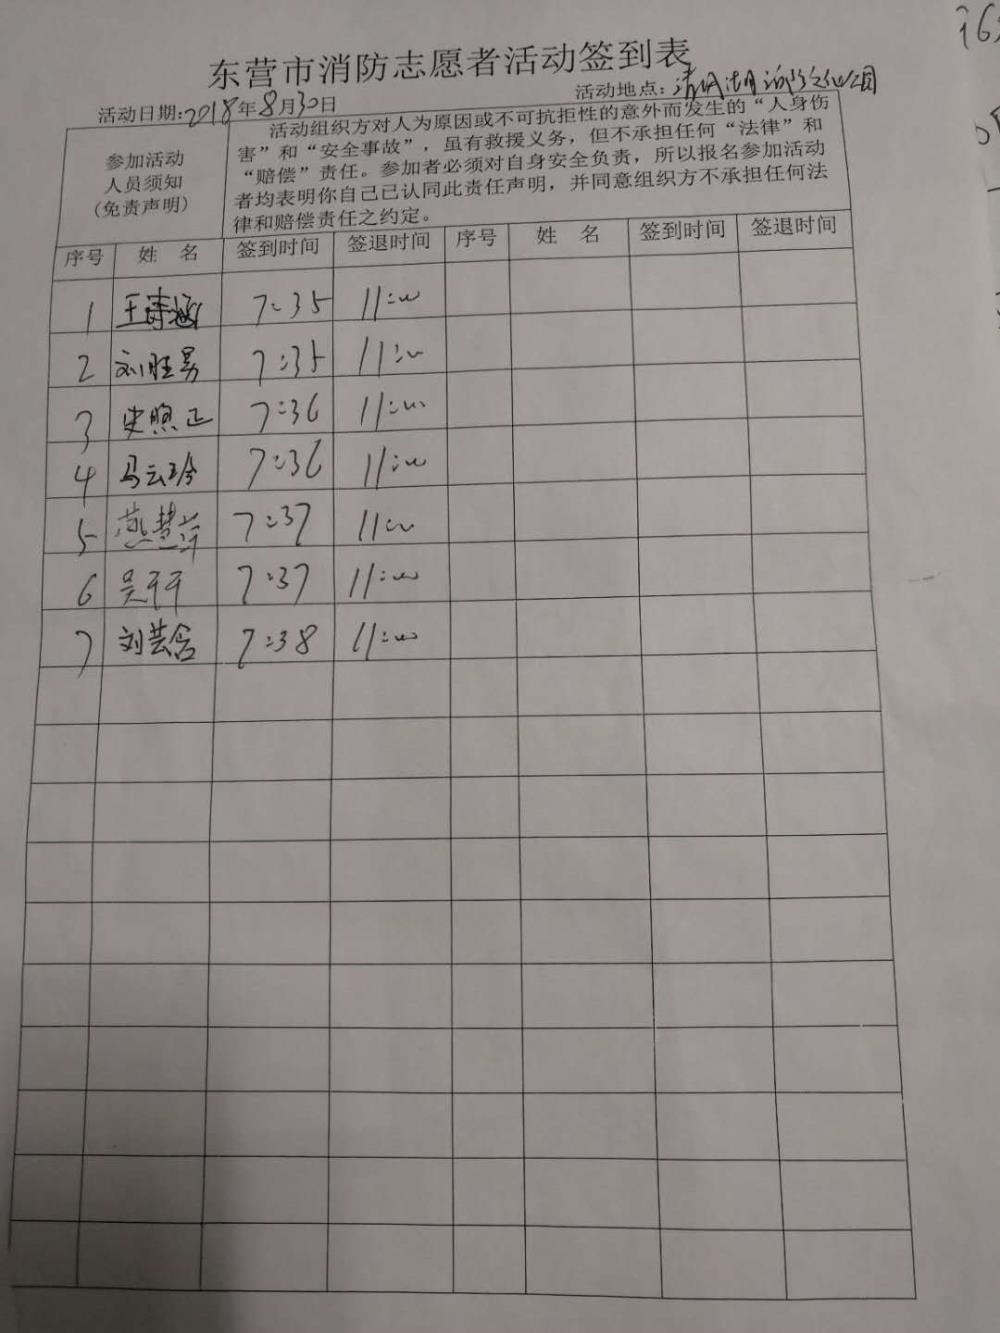 东营市消防志愿者活动签到表
活动日期:2018年8月30日 活动地点:清风湖消防文化公园
参加活动
人员须知
(免责声明)
活动组织方对人为原因或不可抗拒性的意外而发生的“人身伤
害”和“安全事故”，虽有救援义务，但不承担任何“法律”和
“赔偿”责任。参加者必须对自身安全负责，所以报名参加活动
者均表明你自己已认同此责任声明，并同意组织方不承担任何法
律和赔偿责任之约定。
序号 姓 名 签到时间 签退时间 序号 姓 名 签到时间 签退时间
1 王诗涵 7:35 11:00
2 刘旺昺 7:35 11:00
3 史照正 7:36 11:00
4 马云玲 7:36 11:00
5 燕慧萍 7:37 11:00
6 吴平平 7:37 11:00
7 刘芸含 7:38 11:00